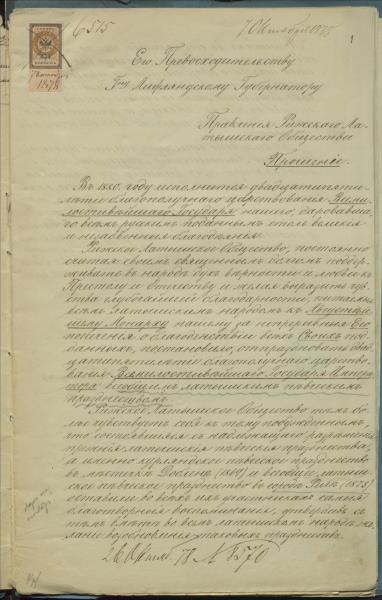 6515
7 Октября 1878
1
Его Превосходительству
Гну Лифляндскому Губернатору
Правления Рижского Ла-
тышского Общества
Прошение.
Въ 1880. году исполнится двадцатипяти-
летіе благополучнаго царствованія Всеми-
лостивѣйшаго Государя нашего, даровавша-
го всѣмъ русскимъ подданнымъ столь великія
и неоцѣненныя благодѣянія.
Рижское Латышское Общество, постоянно
считая своимъ священнымъ долгомъ поддер-
живать въ народѣ духъ вѣрности и любви къ
Престолу и Отечеству и желая выразить чув-
ства глубочайшей благодарности, питаемыя
всѣмъ латышскимъ народомъ къ Августѣй-
шему Монарху нашему за непрерывныя Его
попеченія о благоденствіи всѣхъ своихъ под-
данныхъ, постановило, отпраздновать двад-
цатипятилѣтіе благополучнаго царство-
ванія Всемилостивѣйшаго Государя Импера-
тора всеобщимъ латышскимъ пѣвческимъ
празднествомъ.
Рижское Латышское Общество тѣмъ бо-
лѣе чувствуетъ себя къ тому побужденнымъ,
что состоявшіяся съ надлежащаго разрѣшенія
прежнія латышскія пѣвческія празднества,
а именно курляндское пѣвческое празднество
въ мѣстечкѣ Доблена (1870) и всеобщее латыш-
ское пѣвческое празднество въ городѣ Ригѣ (1873)
оставили во всѣхъ ихъ участникахъ самыя
благотворныя воспоминанія, утвердивъ съ
тѣмъ вмѣстѣ во всемъ латышскомъ народѣ же-
ланіе возобновленія таковыхъ празднествъ.
26 Октяб. 78 № 8570